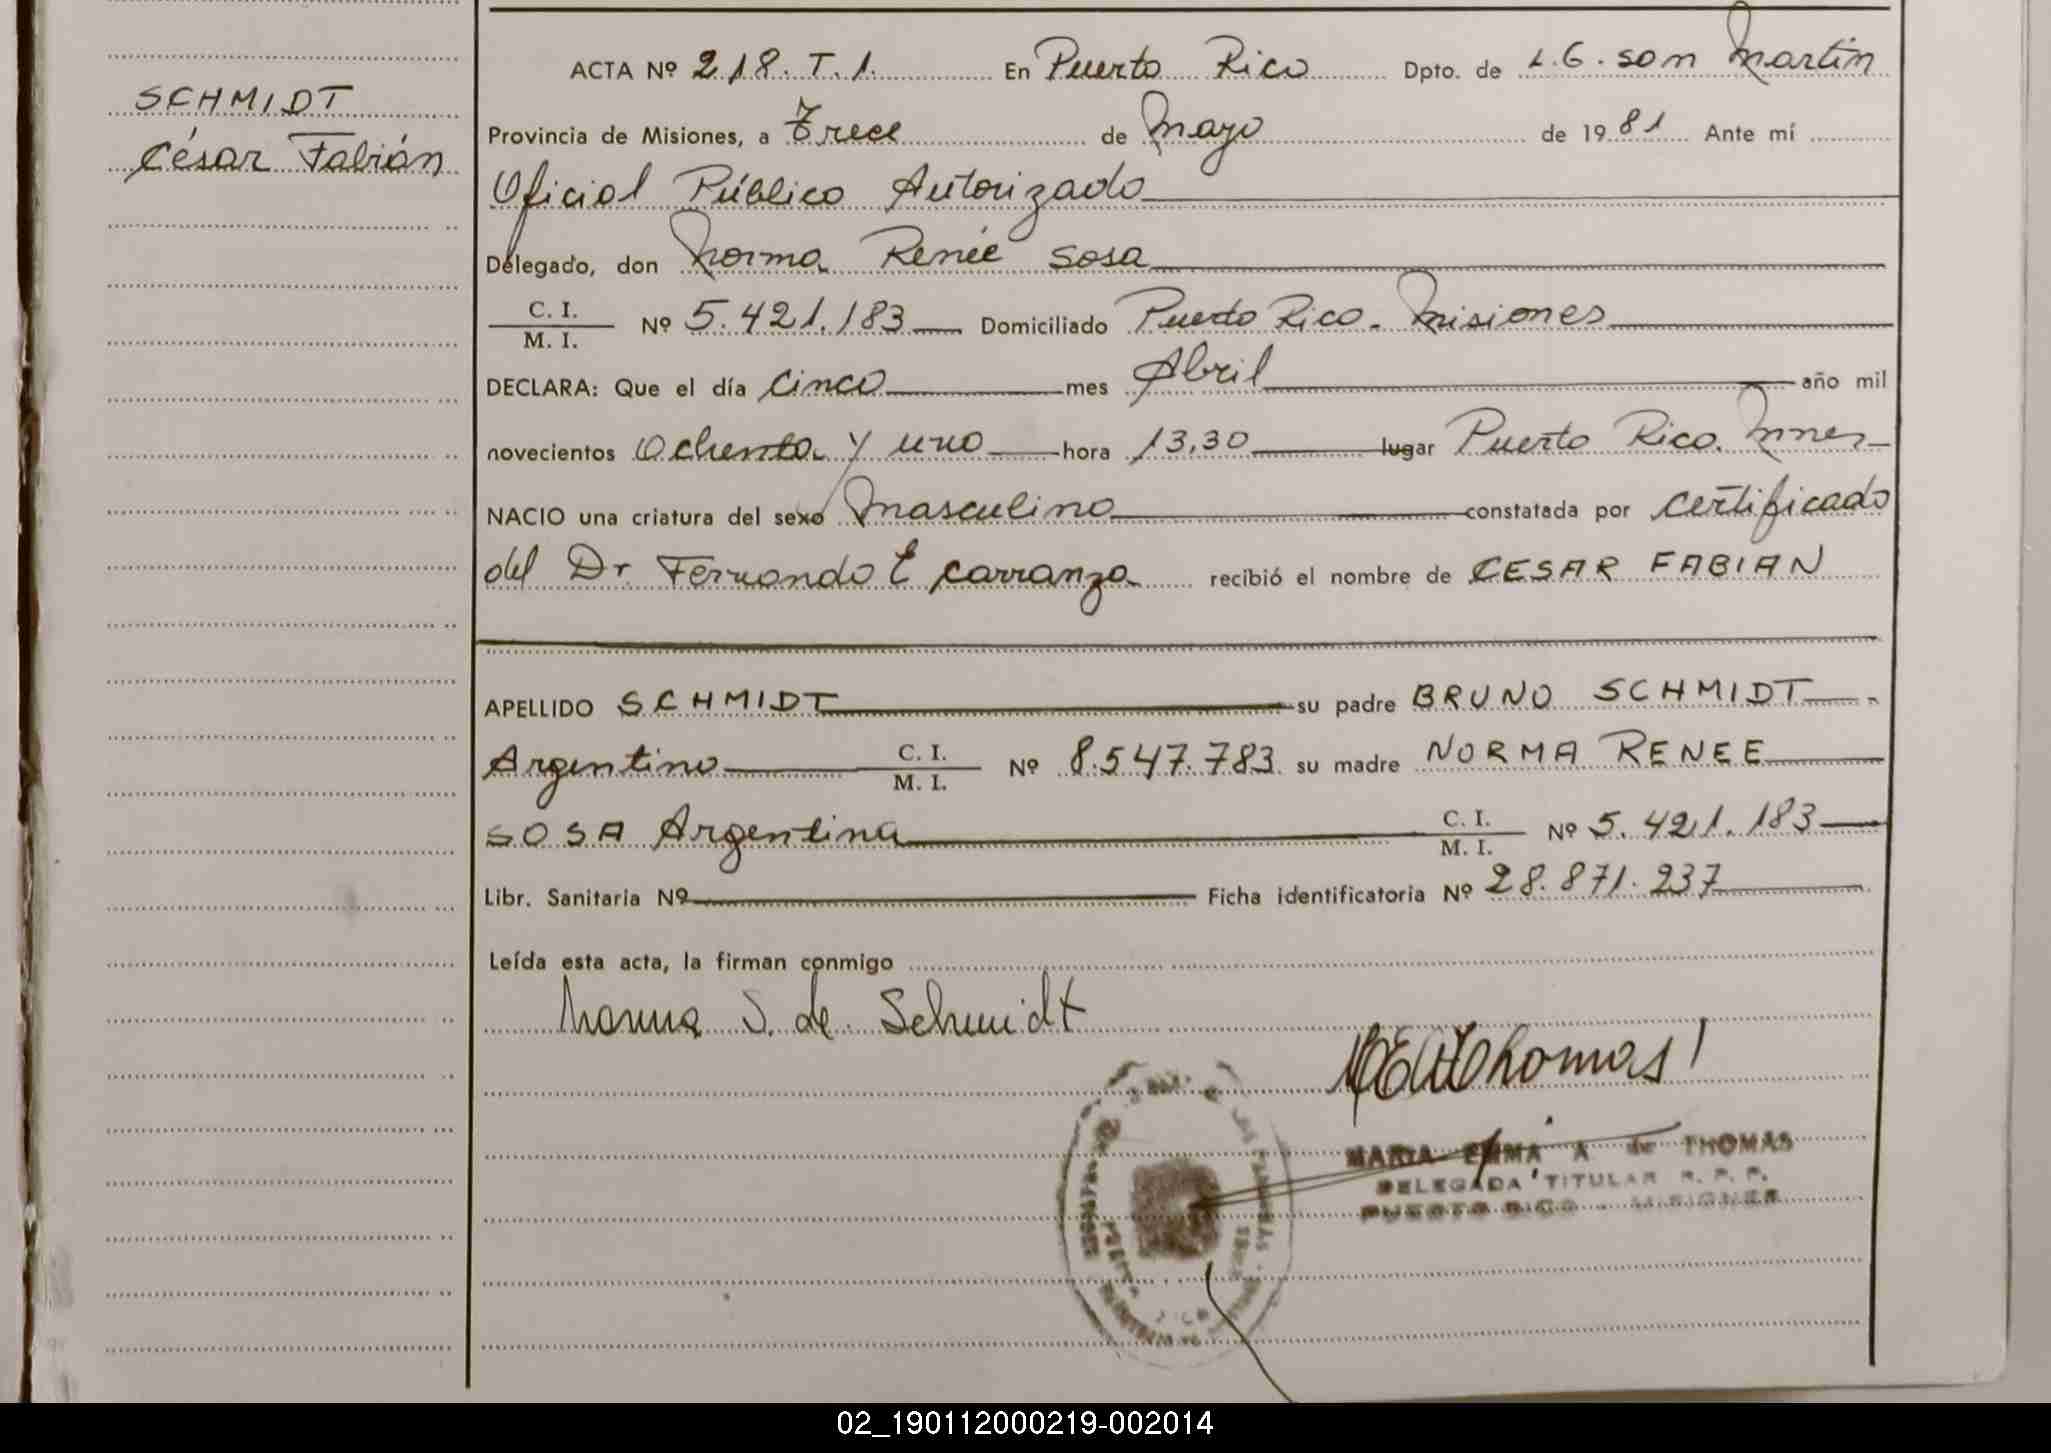 SCHMIDT
César Fabián
ACTA Nº 218. T. 1. En Puerto Rico Dpto. de L. G. san Martín
Provincia de Misiones, a Trece de Mayo de 1981 Ante mí
Oficial Público Autorizado
Delegado, don Norma Renée Sosa
C. I.
M. I. Nº 5.421.183 Domiciliado Puerto Rico. Misiones
DECLARA: Que el día cinco mes Abril año mil
novecientos Ochenta y uno hora 13,30 lugar Puerto Rico. Mnes
NACIO una criatura del sexo Masculino constatada por certificado
del Dr. Fernando E Carranza recibió el nombre de CESAR FABIAN
APELLIDO SCHMIDT su padre BRUNO SCHMIDT
Argentino C. I. M. I. Nº 8.547.783 su madre NORMA RENEE
SOSA Argentina C. I. M. I. Nº 5.421.183
Libr. Sanitaria Nº Ficha identificatoria Nº 28.871.237
Leída esta acta, la firman conmigo
Norma S. de Schmidt
Thomas
MARIA EMMA A de THOMAS
DELEGADA TITULAR R. P. P.
PUERTO RICO - MISIONES
02_190112000219-002014